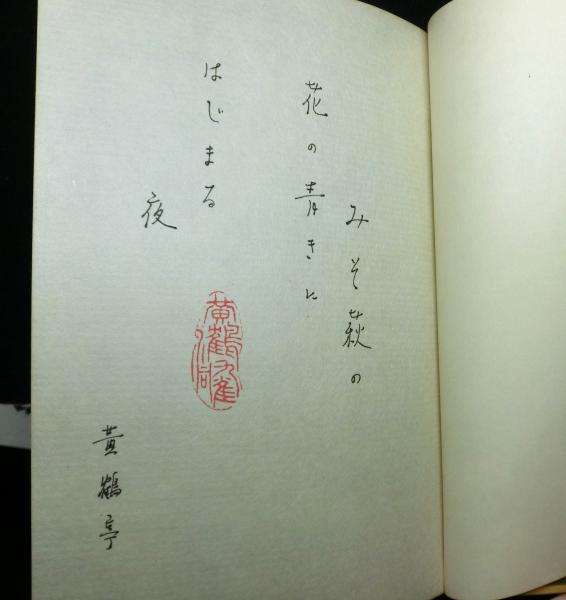 みそ萩の
花の青きに
はじまる
夜
黄鶴亭